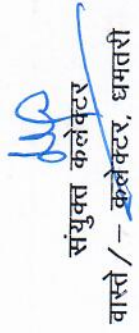 संयुक्त कलेक्टर
वास्ते – / कलेक्टर, धमतरी